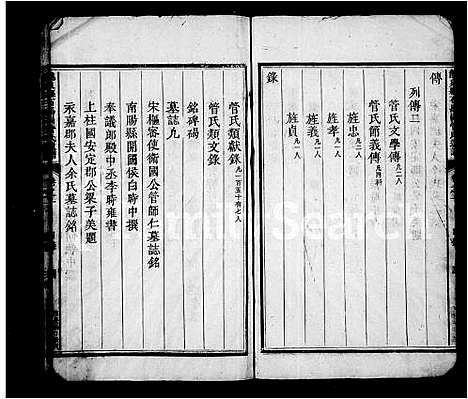 傳
列傳二
管氏文學傳凡二人
管氏節義傳凡四科
旌忠凡一人
旌孝凡一人
旌義凡一人
旌貞凡一人
錄
管氏類獻錄
管氏類文錄
銘碑碣
墓誌九
宋樞密使衛國公管師仁墓誌銘
南陽縣開國侯白時中撰
奉議郎殿中丞李時雍書
上柱國安定郡公梁子美題
永嘉郡夫人余氏墓誌銘